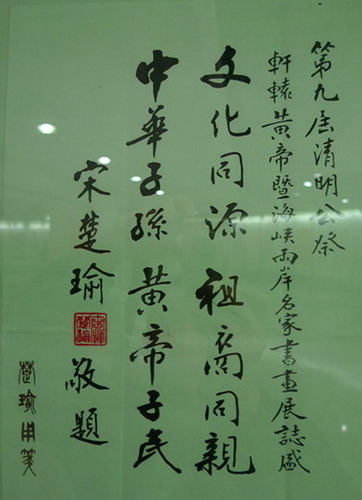 第九屆清明公祭
軒轅黃帝暨海峽兩岸名家書畫展誌盛
文化同源 祖裔同親
中華子孫 黃帝子民
宋楚瑜 敬題
楚瑜用箋